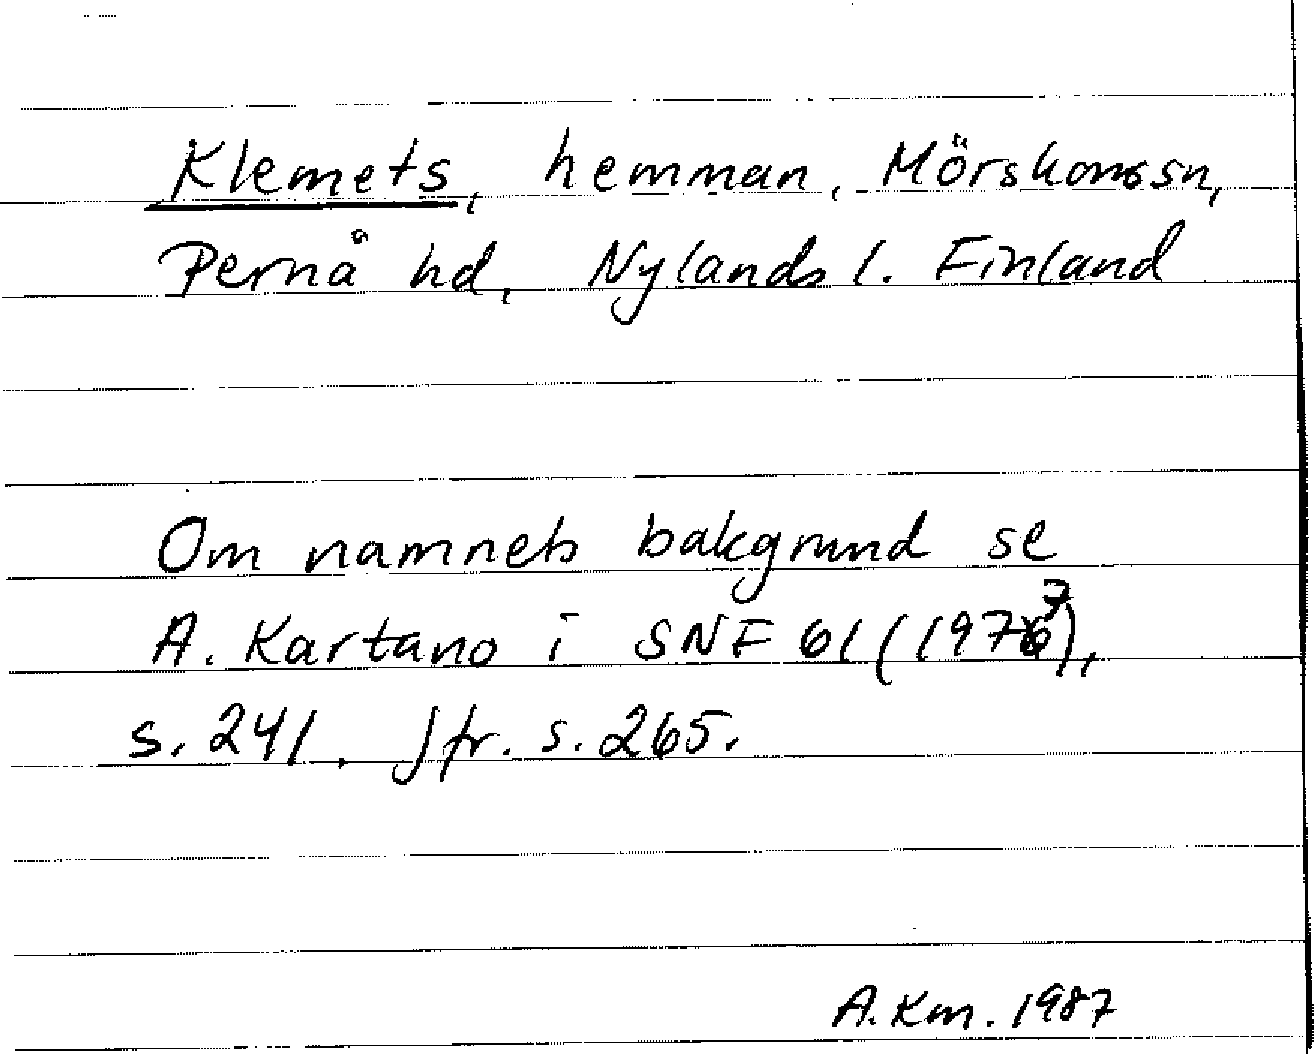 Klemets, hemman, Mörskoms sn,
Pernå hd, Nylands l. Finland
Om namnets bakgrund se
A. Kartano i SNF 61 (1973),
s. 241. Jfr. s. 265.
A. Km. 1987